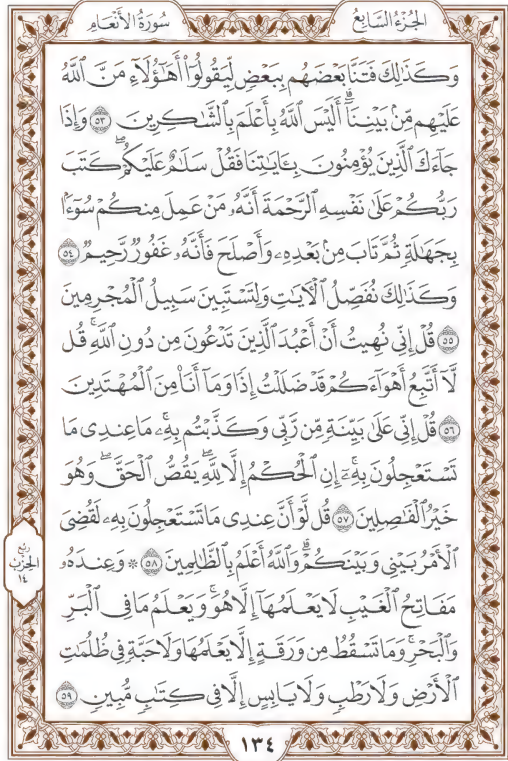 الجُزْءُ السَّابِعُ
سُورَةُ الأَنْعَامِ
وَكَذَٰلِكَ فَتَنَّا بَعْضَهُم بِبَعْضٍ لِّيَقُولُوٓا۟ أَهَٰٓؤُلَآءِ مَنَّ ٱللَّهُ
عَلَيْهِم مِّنۢ بَيْنِنَآ ۗ أَلَيْسَ ٱللَّهُ بِأَعْلَمَ بِٱلشَّٰكِرِينَ ٥٣ وَإِذَا
جَآءَكَ ٱلَّذِينَ يُؤْمِنُونَ بِـَٔايَٰتِنَا فَقُلْ سَلَٰمٌ عَلَيْكُمْ ۖ كَتَبَ
رَبُّكُمْ عَلَىٰ نَفْسِهِ ٱلرَّحْمَةَ أَنَّهُۥ مَنْ عَمِلَ مِنكُمْ سُوٓءًۢا
بِجَهَٰلَةٍ ثُمَّ تَابَ مِنۢ بَعْدِهِۦ وَأَصْلَحَ فَأَنَّهُۥ غَفُورٌ رَّحِيمٌ ٥٤
وَكَذَٰلِكَ نُفَصِّلُ ٱلْـَٔايَٰتِ وَلِتَسْتَبِينَ سَبِيلُ ٱلْمُجْرِمِينَ
٥٥ قُلْ إِنِّى نُهِيتُ أَنْ أَعْبُدَ ٱلَّذِينَ تَدْعُونَ مِن دُونِ ٱللَّهِ ۚ قُل
لَّآ أَتَّبِعُ أَهْوَآءَكُمْ ۙ قَدْ ضَلَلْتُ إِذًا وَمَآ أَنَا۠ مِنَ ٱلْمُهْتَدِينَ
٥٦ قُلْ إِنِّى عَلَىٰ بَيِّنَةٍ مِّن رَّبِّى وَكَذَّبْتُم بِهِۦ ۚ مَا عِندِى مَا
تَسْتَعْجِلُونَ بِهِۦٓ ۚ إِنِ ٱلْحُكْمُ إِلَّا لِلَّهِ ۖ يَقُصُّ ٱلْحَقَّ ۖ وَهُوَ
خَيْرُ ٱلْفَٰصِلِينَ ٥٧ قُل لَّوْ أَنَّ عِندِى مَا تَسْتَعْجِلُونَ بِهِۦ لَقُضِىَ
ٱلْأَمْرُ بَيْنِى وَبَيْنَكُمْ ۗ وَٱللَّهُ أَعْلَمُ بِٱلظَّٰلِمِينَ ٥٨ ۞ وَعِندَهُۥ
مَفَاتِحُ ٱلْغَيْبِ لَا يَعْلَمُهَآ إِلَّا هُوَ ۚ وَيَعْلَمُ مَا فِى ٱلْبَرِّ
وَٱلْبَحْرِ ۚ وَمَا تَسْقُطُ مِن وَرَقَةٍ إِلَّا يَعْلَمُهَا وَلَا حَبَّةٍ فِى ظُلُمَٰتِ
ٱلْأَرْضِ وَلَا رَطْبٍ وَلَا يَابِسٍ إِلَّا فِى كِتَٰبٍ مُّبِينٍ ٥٩
ربع
الحزب
١٤
١٣٤